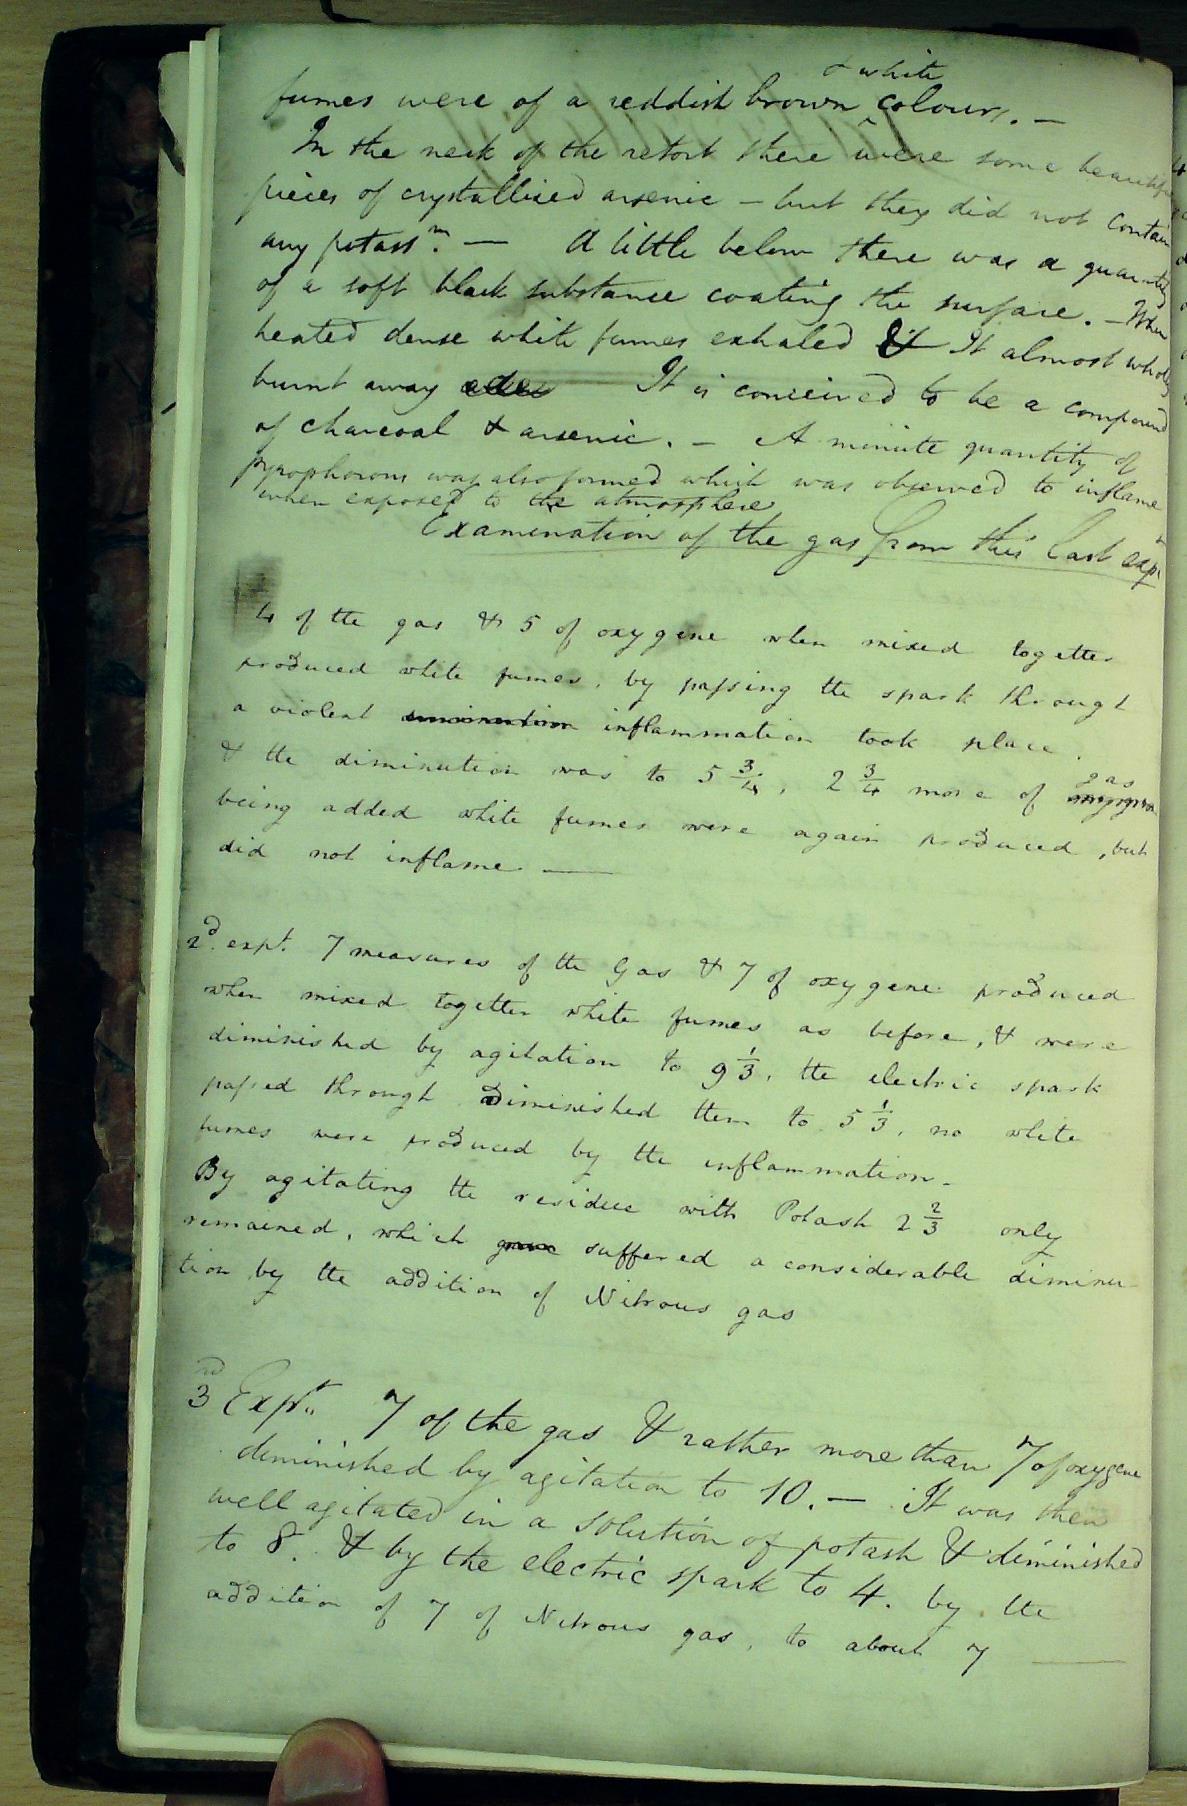 fumes were of a reddish brown & white colour. —
In the neck of the retort there were some beautiful
pieces of crystallized arsenic — but they did not contain
any potassm. — A little below there was a quantity
of a soft black substance coating the surface. — When
heated dense white fumes exhaled & It almost wholly
burnt away It is conceived to be a compound
of charcoal & arsenic. — A minute quantity of
pyrophorous was also formed which was observed to inflame
when exposed to the atmosphere
Examination of the gas from this last expt
4 of the gas & 5 of oxygene when mixed together
produced white fumes, by passing the spark through
a violent inflammation took place.
& the diminution was to 5 3/4, 2 3/4 more of gas
being added white fumes were again produced, but
did not inflame —
2d. expt. 7 measures of the Gas & 7 of oxygene produced
when mixed together white fumes as before, & were
diminished by agitation to 9 1/3, the electric spark
passed through diminished them to 5 1/3, no white
fumes were produced by the inflammation -
By agitating the residue with Potash 2 2/3 only
remained, which gave suffered a considerable diminu-
tion by the addition of Nitrous gas
3rd Expt. 7 of the gas & rather more than 7 of oxygene
diminished by agitation to 10. — It was then
well agitated in a solution of potash & diminished
to 8. & by the electric spark to 4. by the
addition of 7 of Nitrous gas, to about 7 —